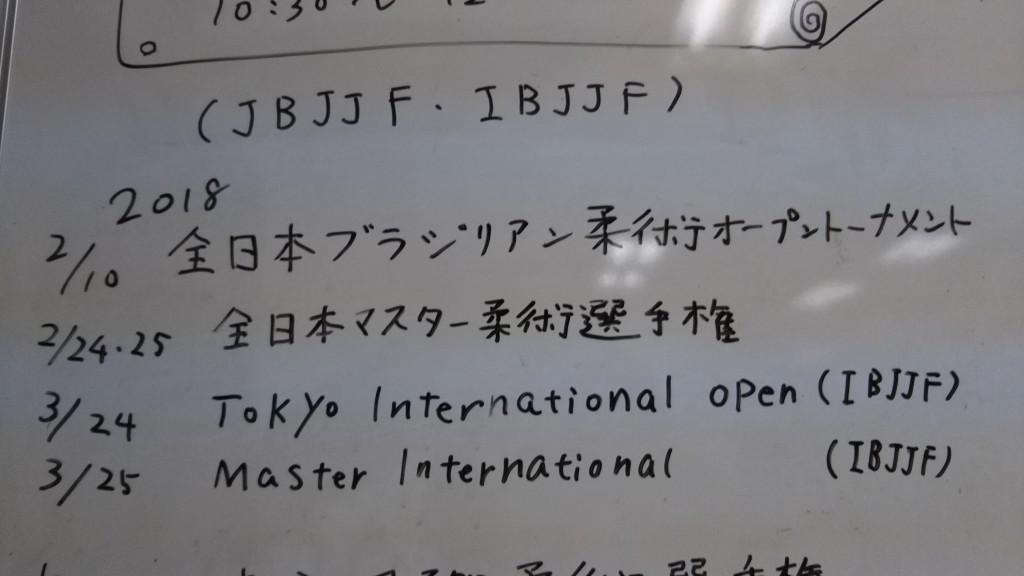 10:30
(JBJJF・IBJJF)
2018
2/10 全日本ブラジリアン柔術オープントーナメント
2/24・25 全日本マスター柔術選手権
3/24 Tokyo International open (IBJJF)
3/25 Master International (IBJJF)
柔術選手権